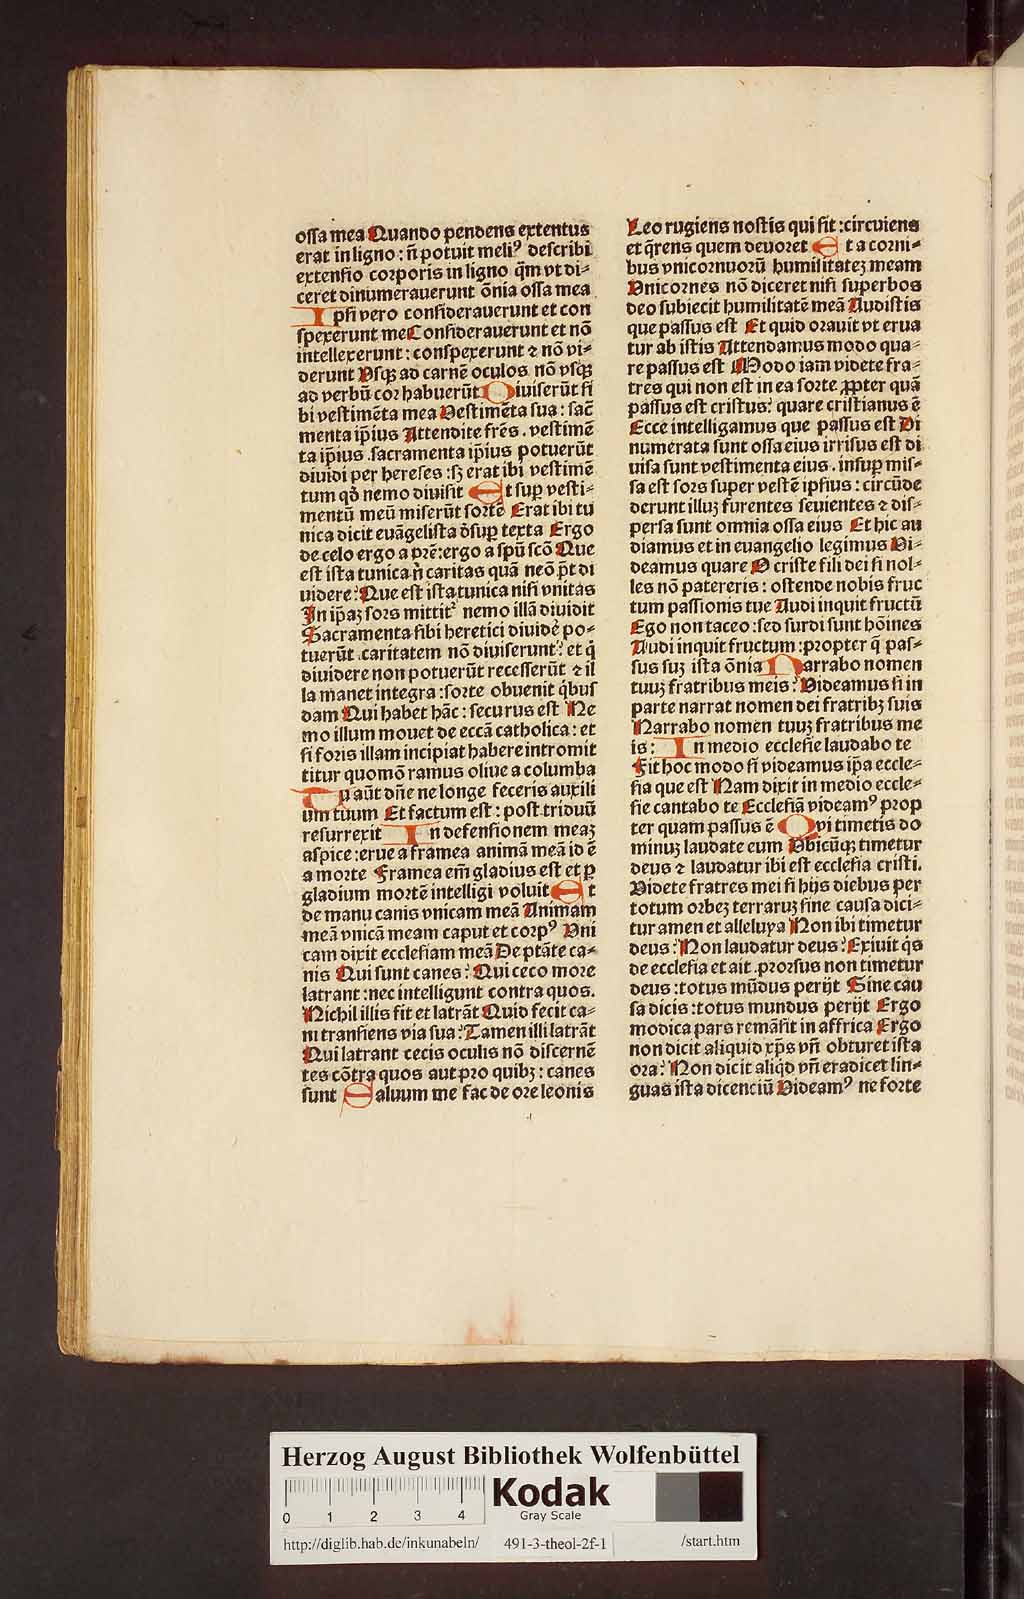 ossa mea Quando pendens extentus
erat in ligno : n̄ potuit meliꝰ describi
extensio corporis in ligno q̄m vt di⸗
ceret dinumerauerunt om̄ia ossa mea
Ipsi vero considerauerunt et con
spexerunt me Considerauerunt et nō
intellexerunt : conspexerunt ⁊ nō vi⸗
derunt Vsqꝫ ad carnē oculos nō vsqꝫ
ad verbū cor habuerūt Diuiserūt si
bi vestimēta mea Vestimēta sua : sac̄
menta ip̄ius Attendite fr̄es . vestimē
ta ip̄ius . sacramenta ip̄ius potuerūt
diuidi per hereses : sꝫ erat ibi vestimē
tum qd̄ nemo diuisit Et suꝑ vesti⸗
mentū meū miserūt sortē Erat ibi tu
nica dicit euāgelista desuꝑ texta Ergo
de celo ergo a pr̄e : ergo a spū scō Que
est ista tunica n̄ caritas quā neō pt̄ di
uidere : Que est ista tunica nisi vnitas
In ip̄aꝫ sors mittit᷑ nemo illā diuidit
Sacramenta sibi heretici diuide᷑ po⸗
tuerūt . caritatem nō diuiserunt : et q̄
diuidere non potuerūt recesserūt ⁊ il
la manet integra : sorte obuenit q̄bus
dam Qui habet hāc : securus est Ne
mo illum mouet de eccā catholica : et
si foris illam incipiat habere intromit
titur quomō ramus oliue a columba
Tu aūt dn̄e ne longe feceris auxili
um tuum Et factum est : post triduū
resurrexit In defensionem meaꝫ
aspice : erue a framea animā meā id ē
a morte Framea em̄ gladius est et ꝑ
gladium mortē intelligi voluit Et
de manu canis vnicam meā Animam
meā vnicā meam caput et corpꝰ Vni
cam dixit ecclesiam meā De ptāte ca⸗
nis Qui sunt canes : Qui ceco more
latrant : nec intelligunt contra quos.
Nichil illis fit et latrāt Quid fecit ca⸗
ni transiens via sua : Tamen illi latrāt
Qui latrant cecis oculis nō discernē
tes cōtra quos aut pro quibꝫ : canes
sunt Saluum me fac de ore leonis
Leo rugiens nostis qui sit : circuiens
et q̄rens quem deuoret Et a corni⸗
bus vnicornuorū humilitateꝫ meam
Vnicornes nō diceret nisi superbos
deo subiecit humilitatē meā Audistis
que passus est Et quid orauit vt erua
tur ab istis Attendamus modo qua⸗
re passus est Modo iam videte fra⸗
tres qui non est in ea sorte ꝓpter quā
passus est cristus : quare cristianus ē
Ecce intelligamus que passus est Di
numerata sunt ossa eius irrisus est di
uisa sunt vestimenta eius . insuꝑ mis⸗
sa est sors super vestē ipsius : circūde
derunt illuꝫ furentes seuientes ⁊ dis⸗
persa sunt omnia ossa eius Et hic au
diamus et in euangelio legimus Vi⸗
deamus quare O criste fili dei si nol⸗
les nō patereris : ostende nobis fruc
tum passionis tue Audi inquit fructū
Ego non taceo : sed surdi sunt hōines
Audi inquit fructum : propter q̄ pas⸗
sus suꝫ ista ōnia Narrabo nomen
tuuꝫ fratribus meis : Videamus si in
parte narrat nomen dei fratribꝫ suis
Narrabo nomen tuuꝫ fratribus me
is : In medio ecclesie laudabo te
Fit hoc modo si videamus ip̄a eccle⸗
sia que est Nam dixit in medio eccle⸗
sie cantabo te Ecclesiā videamꝰ prop
ter quam passus ē Qvi timetis do
minuꝫ laudate eum Vbicūqꝫ timetur
deus ⁊ laudatur ibi est ecclesia cristi.
Videte fratres mei si hijs diebus per
totum orbeꝫ terraruꝫ sine causa dici⸗
tur amen et alleluya Non ibi timetur
deus : Non laudatur deus : Exiuit q̄s
de ecclesia et ait . prorsus non timetur
deus : totus mūdus perijt Sine cau
sa dicis : totus mundus perijt Ergo
modica pars remāsit in affrica Ergo
non dicit aliquid xp̄s vn̄ obturet ista
ora : Non dicit aliqd̄ vn̄ eradicet lin⸗
guas ista dicenciū Videamꝰ ne forte
Herzog August Bibliothek Wolfenbüttel
0 1 2 3 4
Kodak
Gray Scale
http://diglib.hab.de/inkunabeln/ 491-3-theol-2f-1 /start.htm